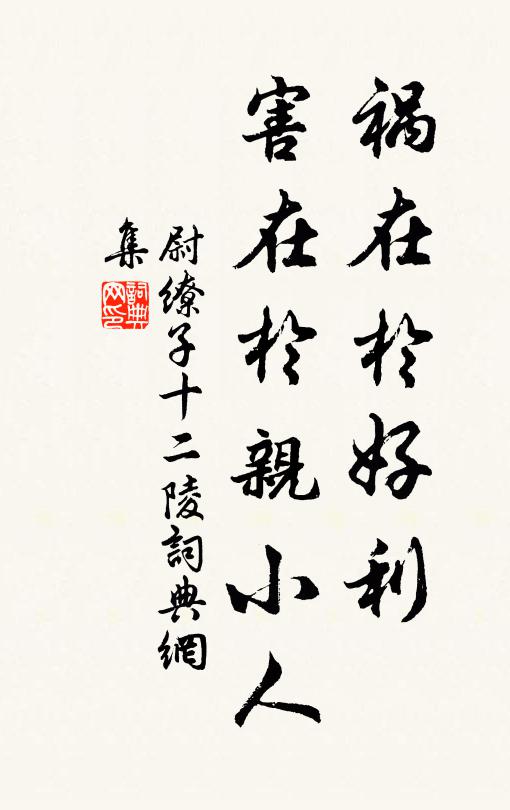 禍在於好利
害在於親小人
尉繚子十二陵詞典網
集
詞典
网印